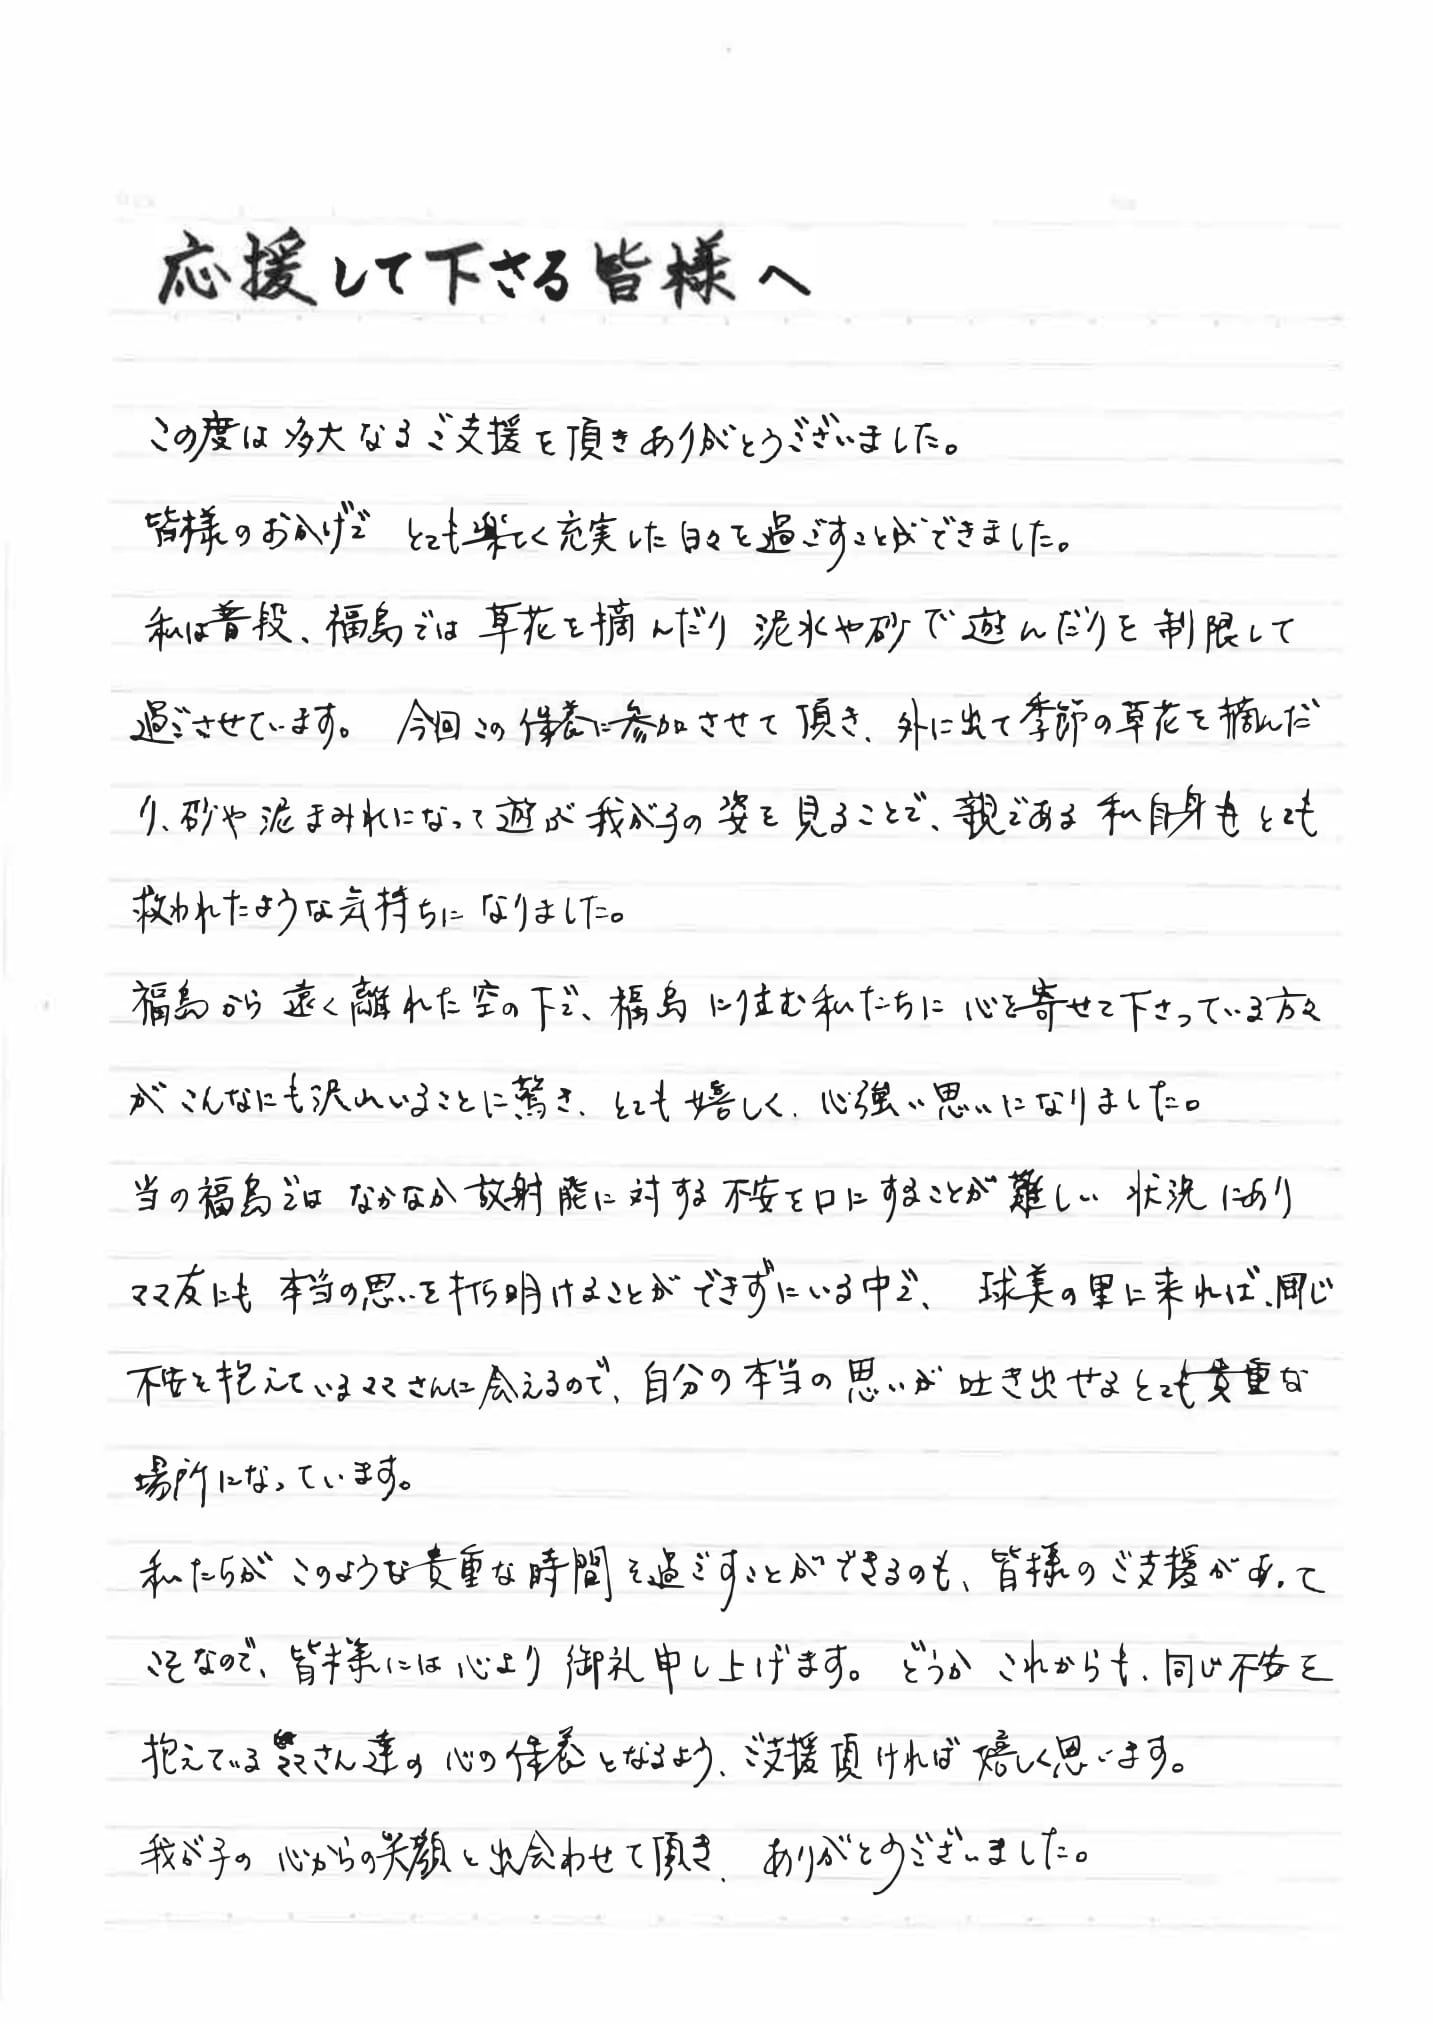 応援して下さる皆様へ
この度は多大なるご支援を頂きありがとうございました。
皆様のおかげで とても楽しく充実した日々を過ごすことができました。
私は普段、福島では草花を摘んだり泥水や砂で遊んだりを制限して
過ごさせています。 今回この保養に参加させて頂き、外に出て季節の草花を摘んだ
り、砂や泥まみれになって遊ぶ我が子の姿を見ることで、親である私自身もとても
救われたような気持ちになりました。
福島から遠く離れた空の下で、福島に住む私たちに心を寄せて下さっている方々
がこんなにも沢山いることに驚き、とても嬉しく、心強い思いになりました。
当の福島ではなかなか放射能に対する不安を口にすることが難しい状況にあり
ママ友にも本当の思いを打ち明けることができずにいる中で、 球美の里に来れば、同じ
不安を抱えているママさんに会えるので、自分の本当の思いが吐き出せるとても貴重な
場所になっています。
私たちがこのような貴重な時間を過ごすことができるのも、皆様のご支援があって
こそなので、皆様には心より御礼申し上げます。 どうかこれからも、同じ不安を
抱えているママさん達の心の保養となるよう、ご支援頂ければ嬉しく思います。
我が子の心からの笑顔と出会わせて頂き、ありがとうございました。